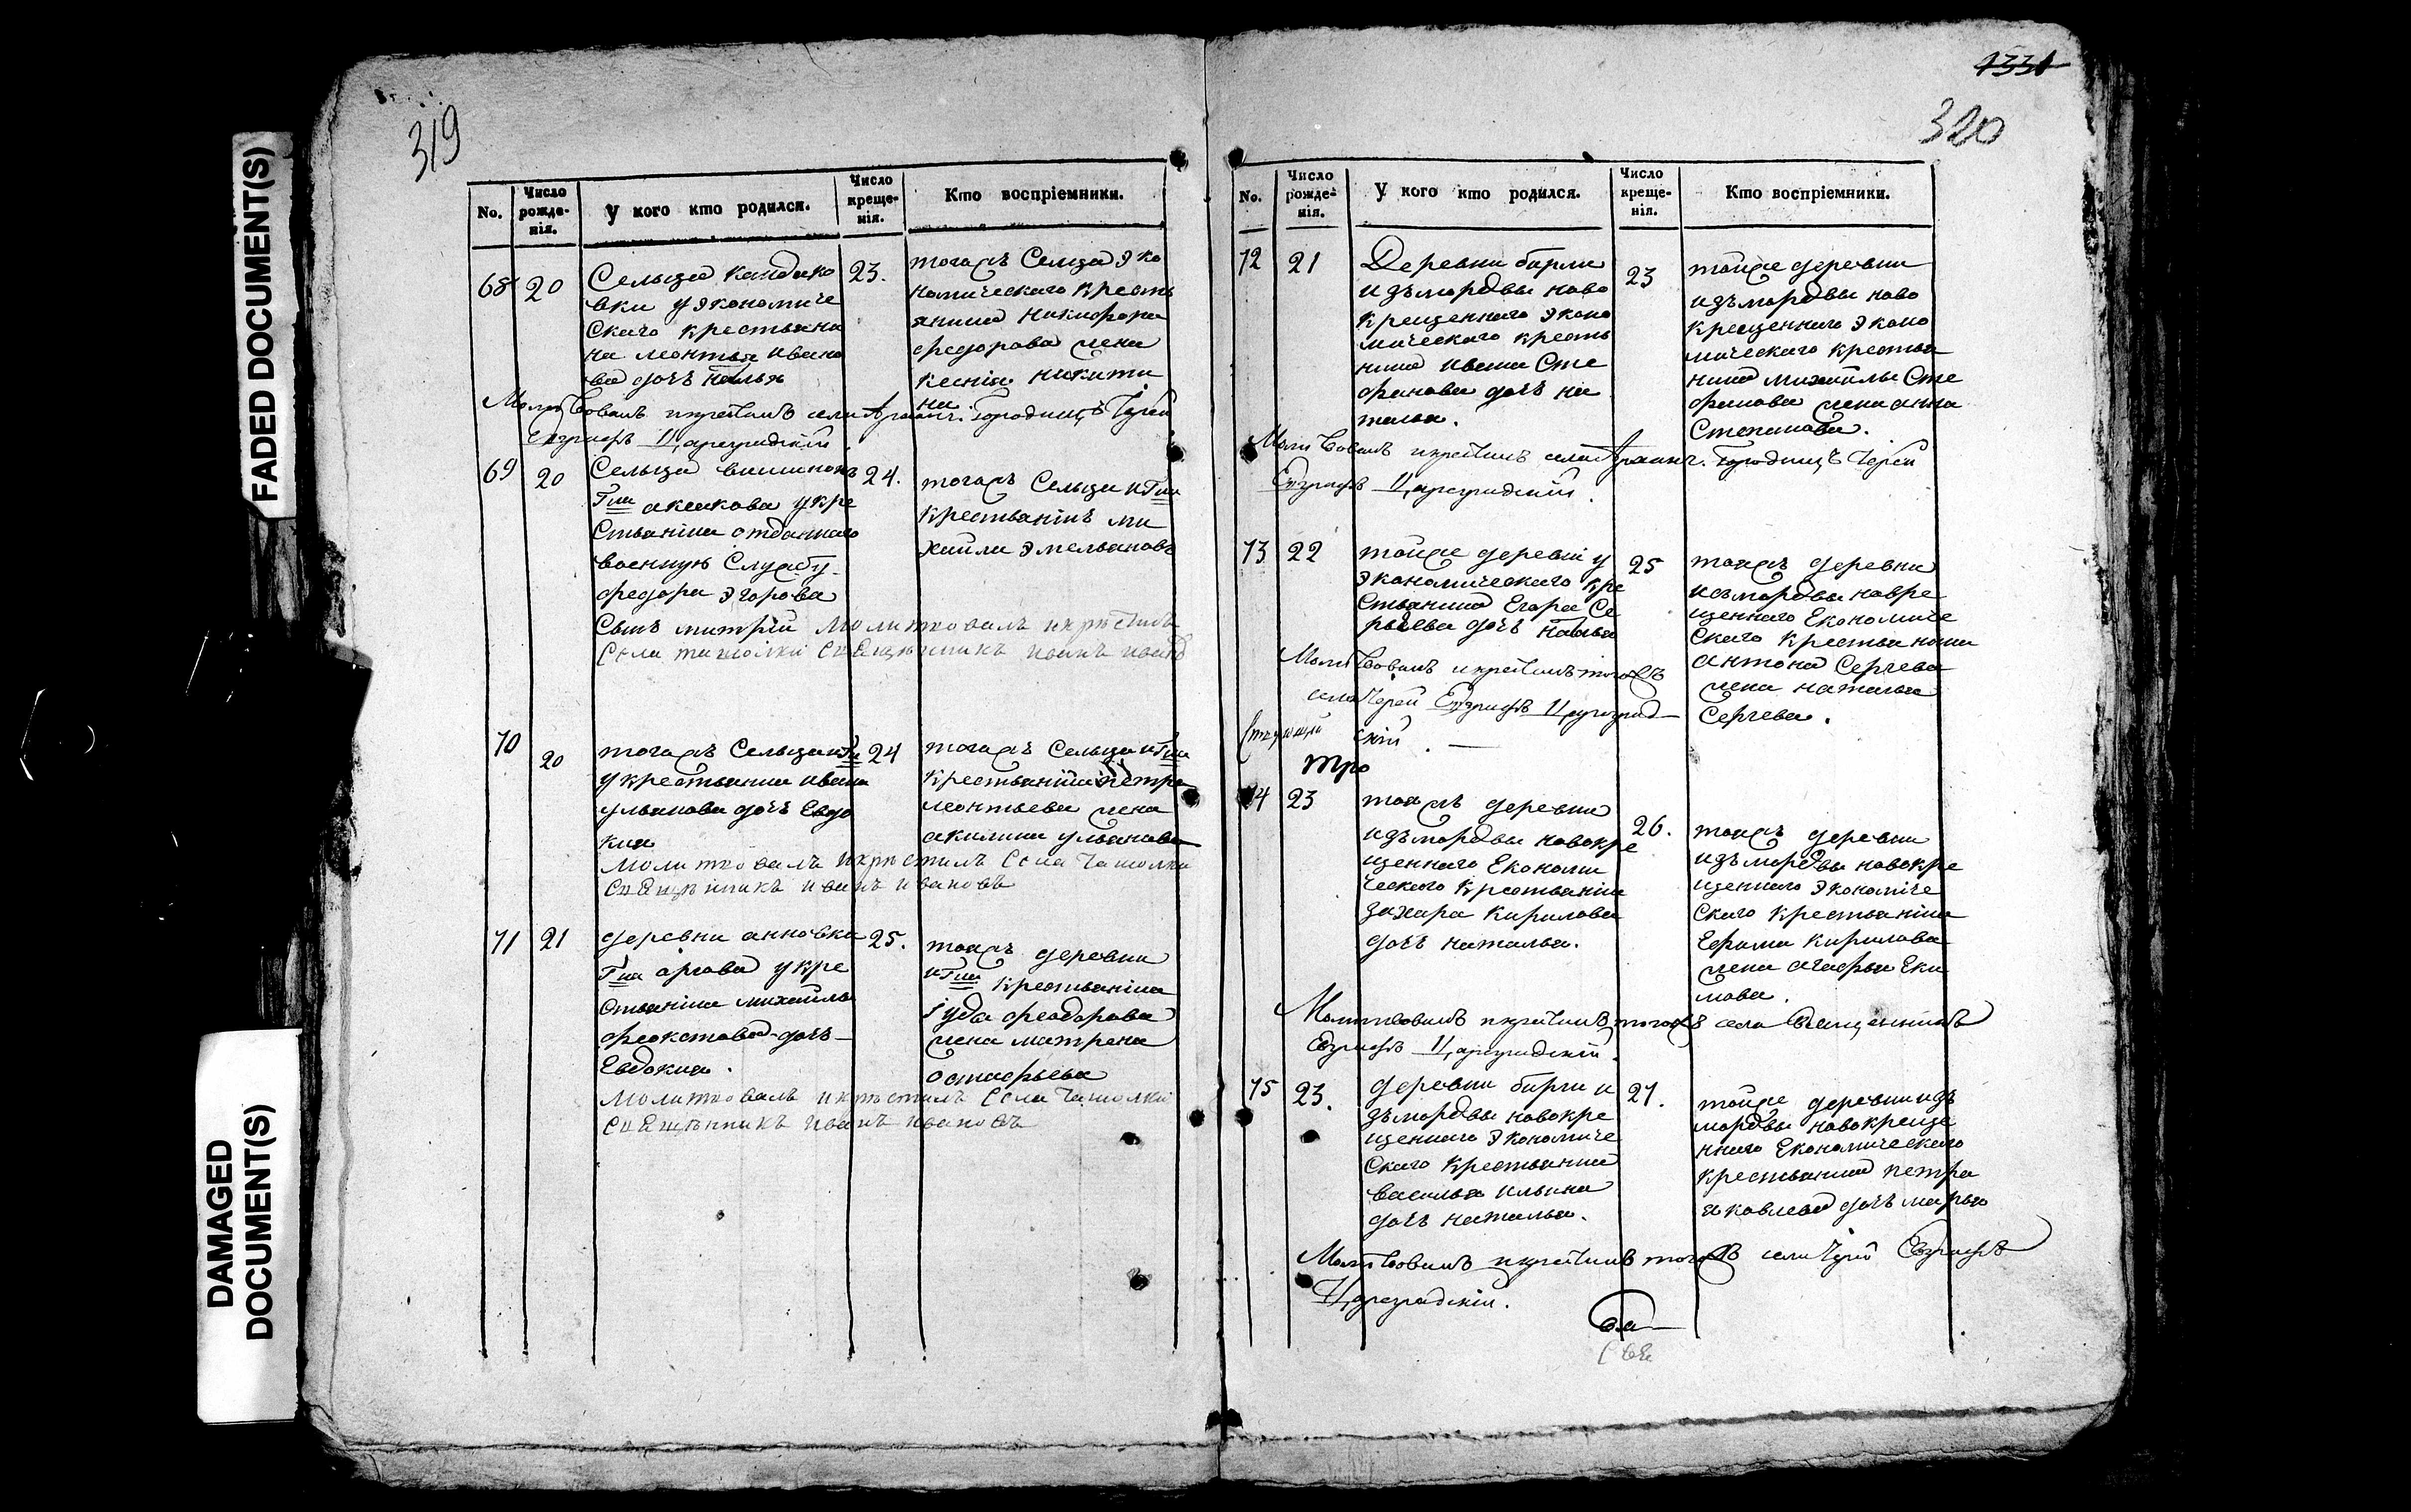 FADED DOCUMENT(S)
DAMAGED
DOCUMENT(S)
319
No.
Число рожде-нія.
У кого кто родился.
Число креще-нія.
Кто воспріемники.
68 20
Сельца Кандако
вки у экономиче
скаго крестьяни
на леонтья ивано
ва дочь
23.
тогожъ Сельца эко
номическаго кресть
янина никифора
федорова жена
ксенія никити
на
Молитвовалъ и крестилъ села Городищъ Іерей
Евграфъ Цареградскій
69 20
Сельца
Гна аксакова у кре
стьянина отданнаго
военную службу
федора эгорова
сынъ митрій
24.
тогожъ Сельца и Гна
крестьянінъ ми
хайла эмельяновъ
молитвовалъ и крѣстилъ
села священникъ иванъ ивановъ
70 20
тогожъ Сельца и Гна
у крестьянина ивана
ульянова дочь Евдо
кия
24
тогожъ Сельца и Гна
крестьяніна петра
леонтьева жена
акилина ульянова
молитвовалъ и крѣстилъ села
священникъ иванъ ивановъ
71 21
деревни анновки
Гна у кре
стьяніна михайлы
дочь
Евдокия.
25.
тояжъ деревни
и Гна крестьяніна
іуды феодорова
жена матрена
остафьева
молитвовалъ и крѣстилъ села
священникъ иванъ ивановъ
1331
320
No.
Число рожде-нія.
У кого кто родился.
Число креще-нія.
Кто воспріемники.
72 21
Деревни бирли
изъ мордвы ново
крещеннаго эконо
мическаго кресть
нина ивана Сте
фанова дочь на
талья.
23
тойже деревни
изъ мордвы ново
крещеннаго эконо
мическаго крестья
нина михайлы Сте
фанова жена анна
Степанова.
Молитвовалъ и крестилъ села Городищъ Іерей
Евграфъ Цареградскій.
73 22
тойже деревні у
экономическаго кре
стьянина Егора Се
ргѣева дочь
25
тояжъ деревни
изъ мордвы новре
щеннаго Економиче
скаго крестья нина
антона Сергева
жена наталья
Сергева.
Молитвовалъ и крестилъ тогожъ
села Іерей Евграфъ Цареград
скій.
74 23
тояжъ деревни
изъ мордвы новокре
щеннаго Економи
ческаго крестьяніна
захара Кирилова
дочь наталья.
26.
тояжъ деревни
изъ мордвы новокре
щеннаго экономіче
скаго крестьяніна
Ефима Кирилова
жена агафья Еки
мова.
Молитвовалъ и крестилъ тогожъ села Священникъ
Евграфъ Цареградскій.
75 23.
деревни бирли и
зъ мордвы новокре
щеннаго экономиче
скаго крестьянина
василья ильина
дочь наталья.
27.
тойже деревни изъ
мордвы новокреще
ннаго Економическаго
крестьянина петра
яковлева дочь марья
Молитвовалъ и крестилъ тогожъ села Іерей Евграфъ
Цареградскій.